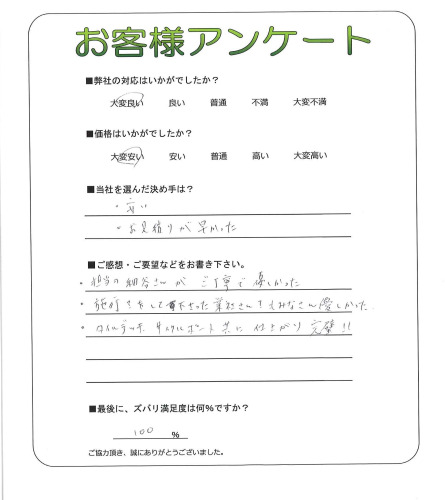 お客様アンケート
■弊社の対応はいかがでしたか?
大変良い 良い 普通 不満 大変不満
■価格はいかがでしたか?
大変安い 安い 普通 高い 大変高い
■当社を選んだ決め手は?
・安い
・お見積りが早かった
■ご感想・ご要望などをお書き下さい。
・担当の細谷さんが ご丁寧で優しかった
・施工をして下さった業社さんもみなさん優しかった
・タイルデッキ サイクルポート共に 仕上がり完璧!!
■最後に、ズバリ満足度は何%ですか?
100 %
ご協力頂き、誠にありがとうございました。